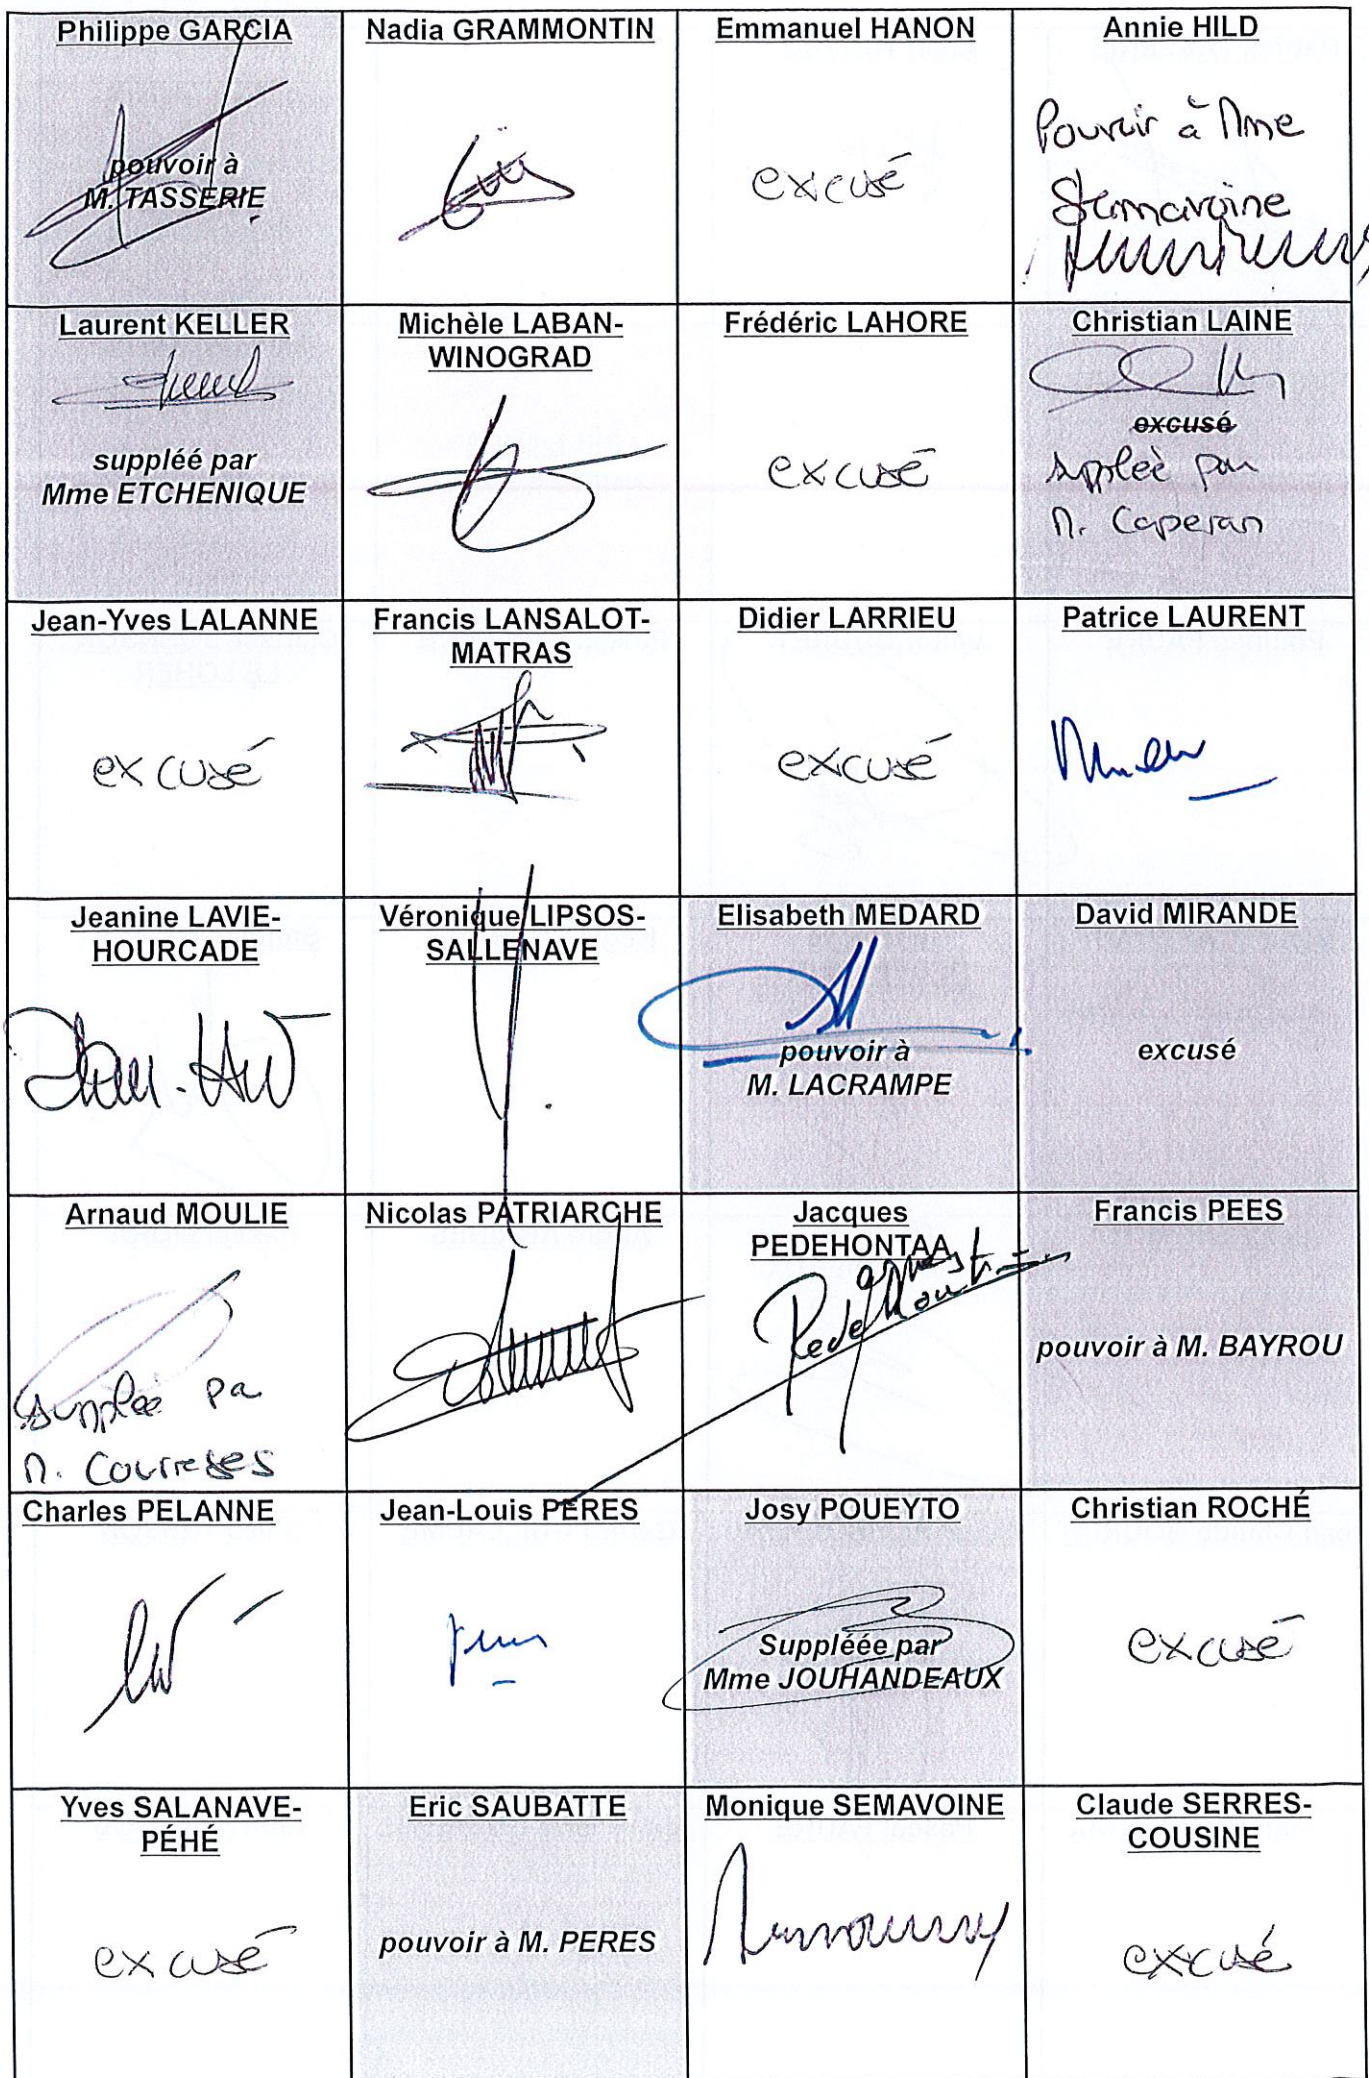 Philippe GARCIA
pouvoir à
M. TASSERIE
Nadia GRAMMONTIN
Emmanuel HANON
excusé
Annie HILD
Pouvoir à Mme
Semavoine
Laurent KELLER
suppléé par
Mme ETCHENIQUE
Michèle LABAN-
WINOGRAD
Frédéric LAHORE
excusé
Christian LAINE
excusé
suppléé par
M. Caperan
Jean-Yves LALANNE
excusé
Francis LANSALOT-
MATRAS
Didier LARRIEU
excusé
Patrice LAURENT
Jeanine LAVIE-
HOURCADE
Véronique LIPSOS-
SALLENAVE
Elisabeth MEDARD
pouvoir à
M. LACRAMPE
David MIRANDE
excusé
Arnaud MOULIE
suppléé pa
M. Courreges
Nicolas PATRIARCHE
Jacques
PEDEHONTAA
Francis PEES
pouvoir à M. BAYROU
Charles PELANNE
Jean-Louis PERES
Josy POUEYTO
Suppléée par
Mme JOUHANDEAUX
Christian ROCHÉ
excusé
Yves SALANAVE-
PÉHÉ
excusé
Eric SAUBATTE
pouvoir à M. PERES
Monique SEMAVOINE
Claude SERRES-
COUSINE
excusé